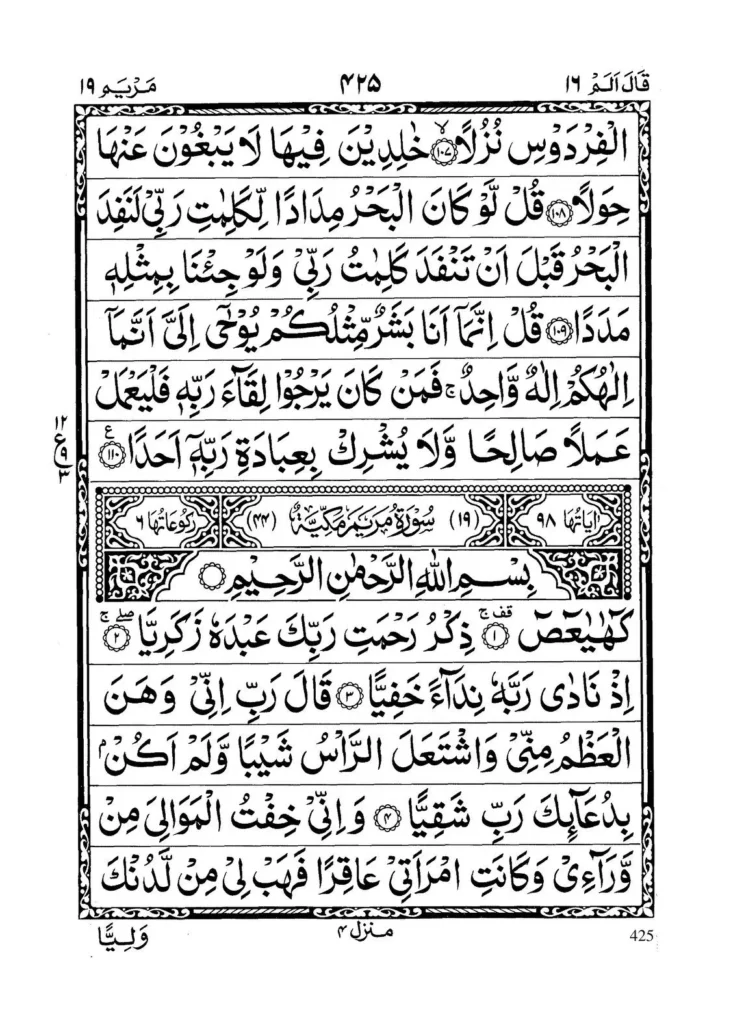 قَالَ اَلَمْ ١٦ ٤٢٥ مَرْيَم ١٩
الْفِرْدَوْسِ نُزُلًا ۙ﴿١٠٧﴾ خٰلِدِيْنَ فِيْهَا لَا يَبْغُوْنَ عَنْهَا
حِوَلًا ﴿١٠٨﴾ قُلْ لَّوْ كَانَ الْبَحْرُ مِدَادًا لِّكَلِمٰتِ رَبِّيْ لَنَفِدَ
الْبَحْرُ قَبْلَ اَنْ تَنْفَدَ كَلِمٰتُ رَبِّيْ وَلَوْ جِئْنَا بِمِثْلِهٖ
مَدَدًا ﴿١٠٩﴾ قُلْ اِنَّمَآ اَنَا بَشَرٌ مِّثْلُكُمْ يُوْحٰٓى اِلَيَّ اَنَّمَآ
اِلٰهُكُمْ اِلٰهٌ وَّاحِدٌ ۚ فَمَنْ كَانَ يَرْجُوْا لِقَآءَ رَبِّهٖ فَلْيَعْمَلْ
عَمَلًا صَالِحًا وَّلَا يُشْرِكْ بِعِبَادَةِ رَبِّهٖٓ اَحَدًا ﴿١١٠﴾ ع
١٢
ع ٩
٣
اٰيَاتُهَا ٩٨ (١٩) سُوْرَةُ مَرْيَمَ مَكِّيَّةٌ (٤٤) رُكُوْعَاتُهَا ٦
بِسْمِ اللّٰهِ الرَّحْمٰنِ الرَّحِيْمِ
كٓهٰيٰعٓصٓ قف ج ﴿١﴾ ذِكْرُ رَحْمَتِ رَبِّكَ عَبْدَهٗ زَكَرِيَّا صلے ج ﴿٢﴾
اِذْ نَادٰى رَبَّهٗ نِدَآءً خَفِيًّا ﴿٣﴾ قَالَ رَبِّ اِنِّيْ وَهَنَ
الْعَظْمُ مِنِّيْ وَاشْتَعَلَ الرَّاْسُ شَيْبًا وَّلَمْ اَكُنْۢ
بِدُعَآئِكَ رَبِّ شَقِيًّا ﴿٤﴾ وَاِنِّيْ خِفْتُ الْمَوَالِيَ مِنْ
وَّرَآءِيْ وَكَانَتِ امْرَاَتِيْ عَاقِرًا فَهَبْ لِيْ مِنْ لَّدُنْكَ
425 منزل ٤ وَلِيًّا